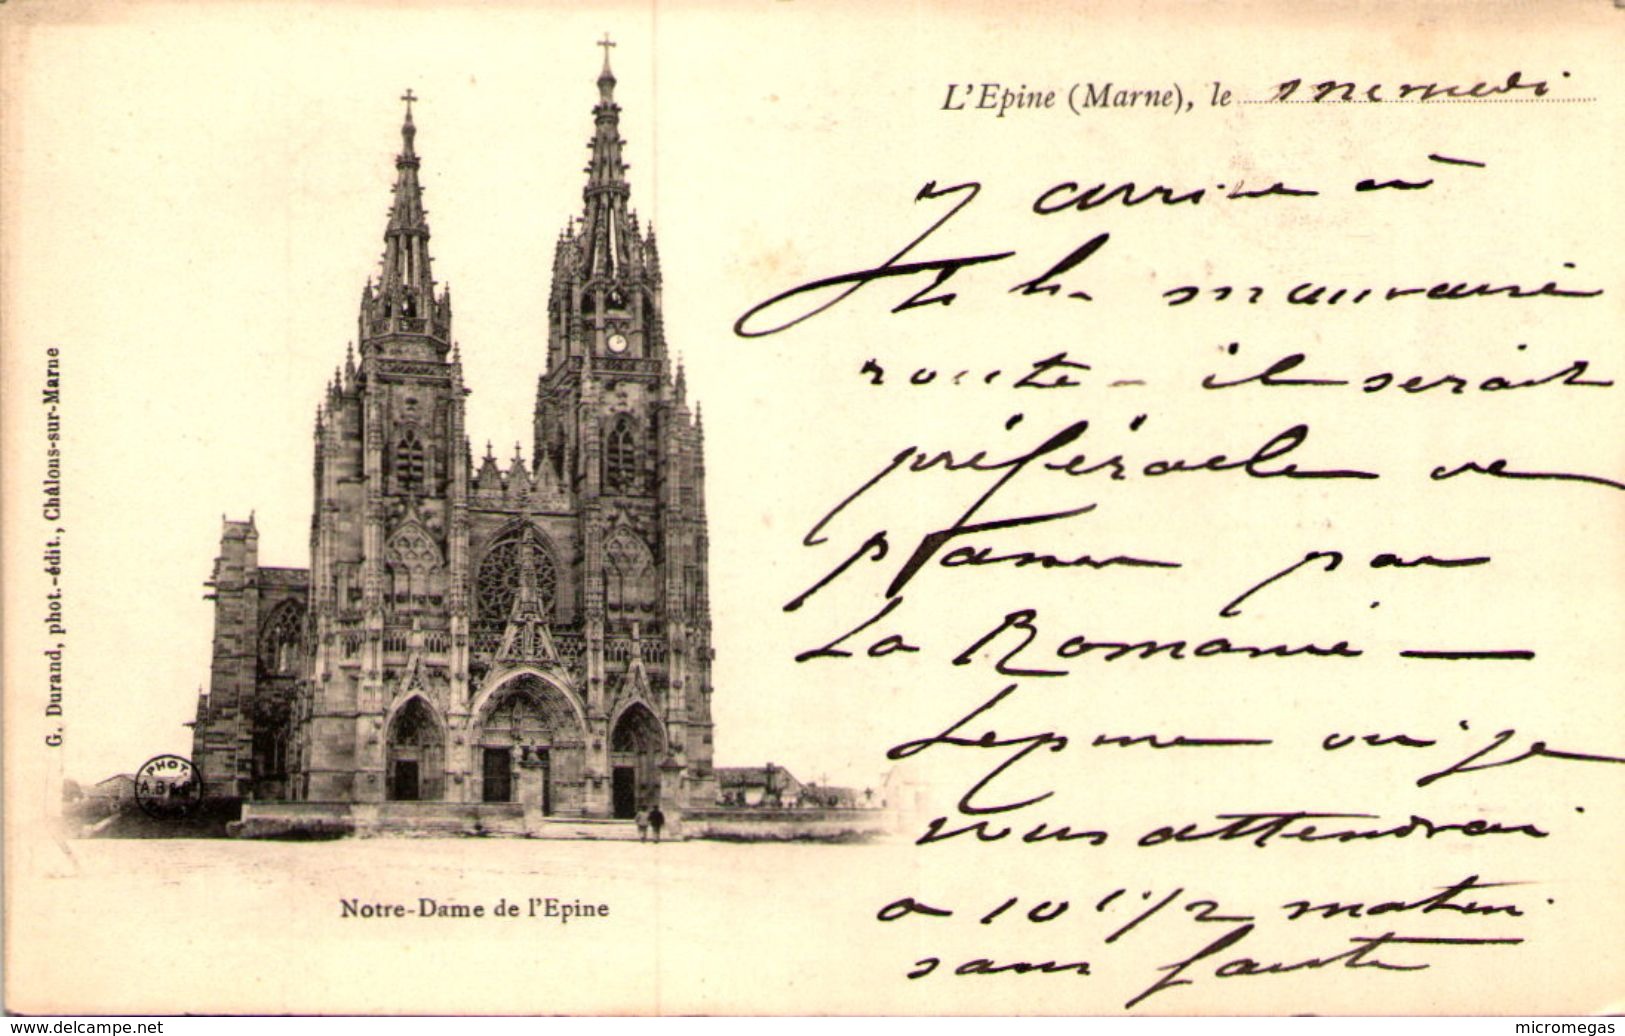 G. Durand, phot.-édit., Châlons-sur-Marne
PHOT.
Notre-Dame de l'Epine
L'Epine (Marne), le
J'arrive à
la mauvaise
route - il serait
préférable de
passer par
La Romanie —
Lepine où je
vous attendrai
a 10h 1/2 matin
sans faute
www.delcampe.net
micromegas